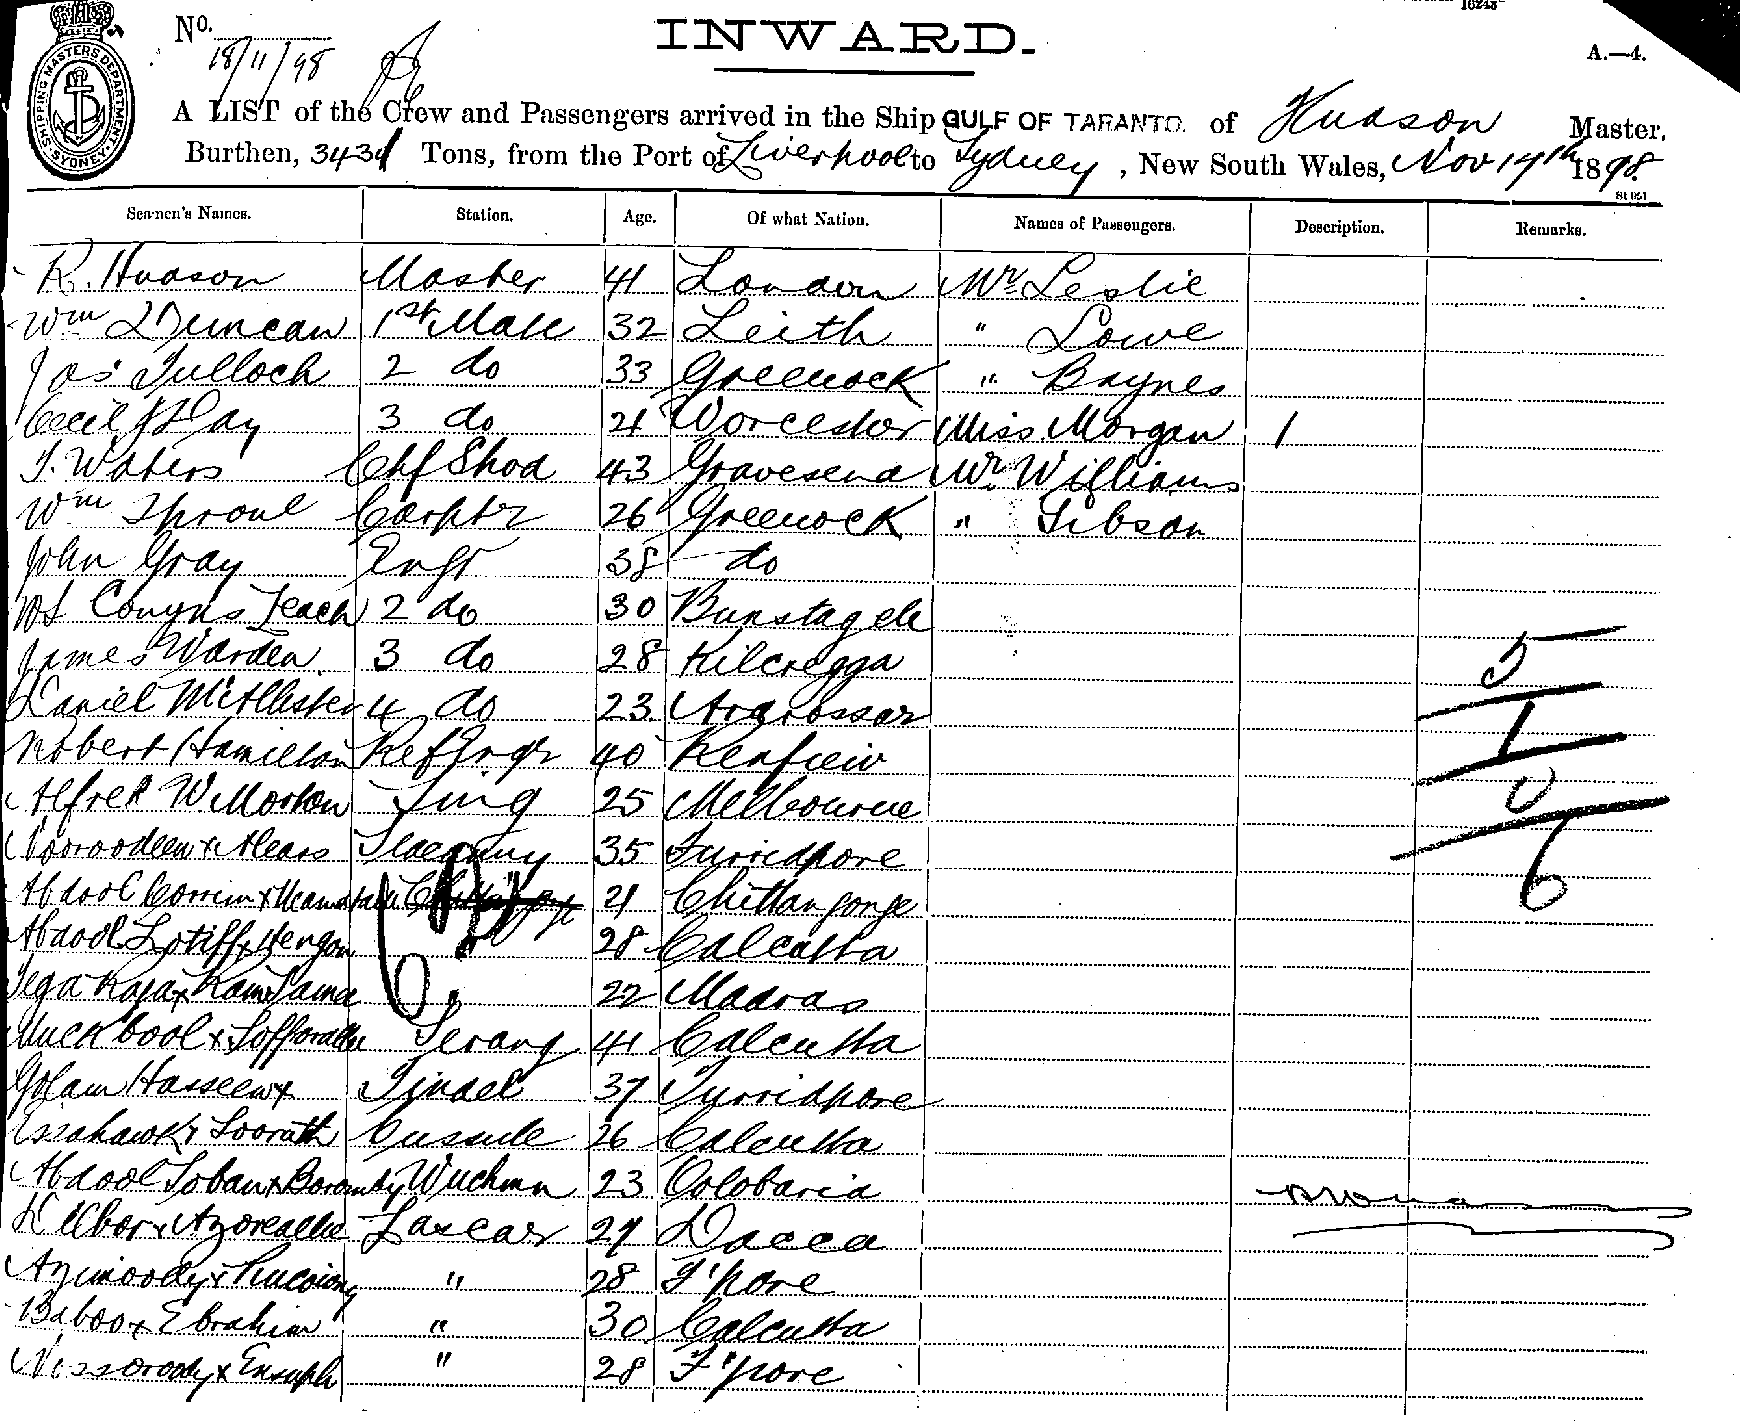 16243
No.
18/11/98
INWARD.
A.—4.
SHIPPING MASTERS DEPARTMENT SYDNEY
A LIST of the Crew and Passengers arrived in the Ship GULF OF TARANTO. of Hudson Master,
Burthen, 3431 Tons, from the Port of Liverpool to Sydney, New South Wales, Nov 17th 1898.
St 051
Seamen's Names. Station. Age. Of what Nation. Names of Passengers. Description. Remarks.
R. Hudson Master 41 London Mr. Leslie
Wm Duncan 1st Mate 32 Leith " Lowe
Jas Tulloch 2 do 33 Greenock " Baynes
Cecil Day 3 do 21 Worcester Miss Morgan 1
T. Waters Chf Stwd 43 Gravesend Mr. Williams
Wm Sproul Carptr 26 Greenock " Gibson
John Gray Engr 38 do
Conyns Leach 2 do 30
James Warden 3 do 28 Kilcregga 5
Daniel McAllister 4 do 23 Ardrossar 1
Robert Hamilton Ref Engr 40 Renfrew
Alfred W Morton 25 Melbourne 0
Nooroodeen x 35 Furridpore
Abdool Corrim x 21 Chittangonge 6
Abdool Lotiff x 28 Calcutta
x Ram Sama 22 Madras
Muckbool x Serang 41 Calcutta
Golam Hosseen x Tindel 37 Furridpore
Essahawk x Cussub 26 Calcutta
Abdool Soban x 23 Oolobaria
Dilbor x Azoreallie Lascar 27 Dacca
x " 28 F'pore
Baboo x Ebrahim " 30 Calcutta
x " 28 F'pore